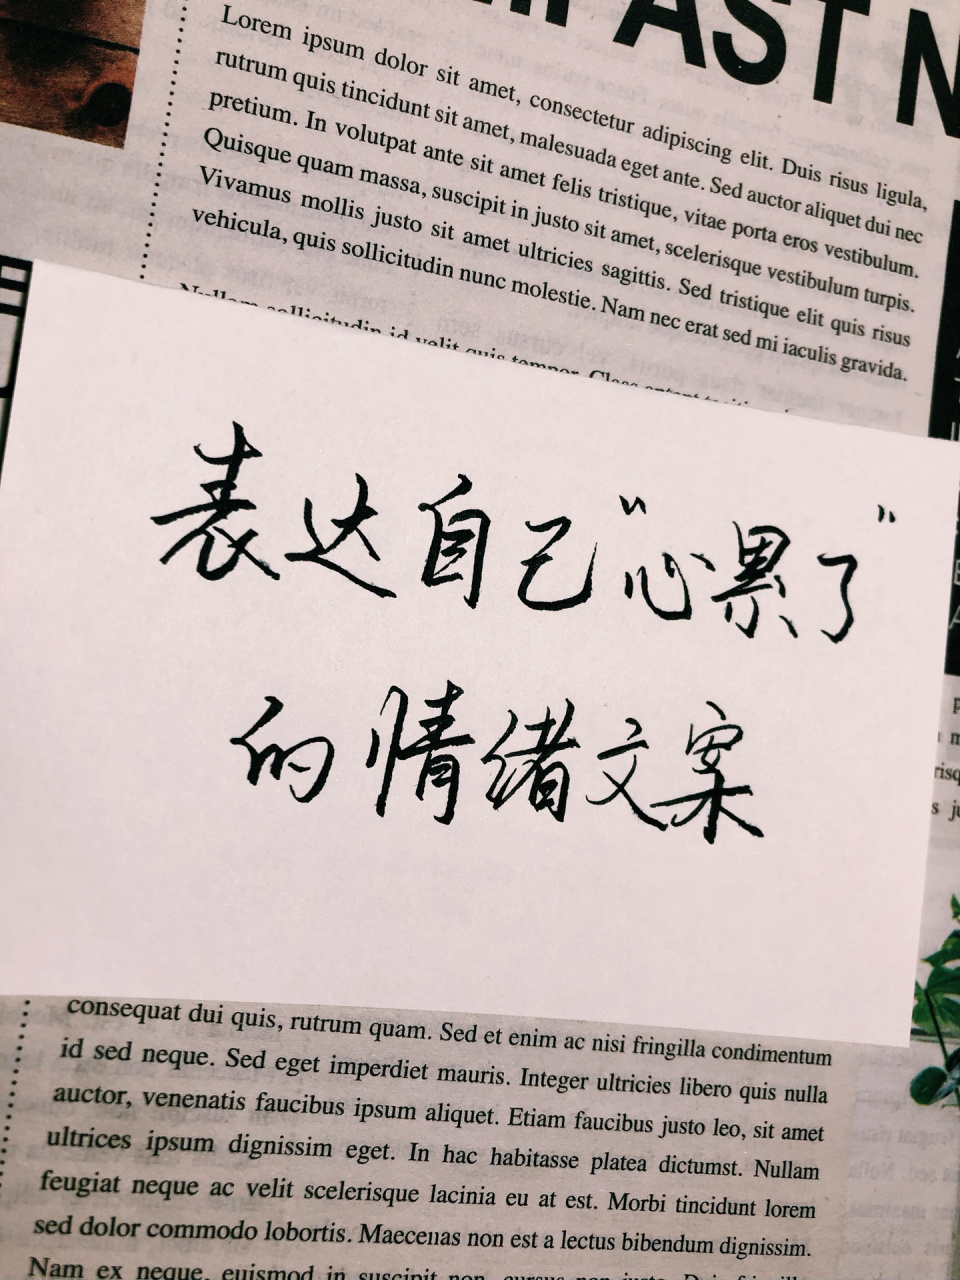 AST N
Lorem ipsum dolor sit amet, consectetur adipiscing elit. Duis risus ligula,
rutrum quis tincidunt sit amet, malesuada eget ante. Sed auctor aliquet dui nec
pretium. In volutpat ante sit amet felis tristique, vitae porta eros vestibulum.
Quisque quam massa, suscipit in justo sit amet, scelerisque vestibulum turpis.
Vivamus mollis justo sit amet ultricies sagittis. Sed tristique elit quis risus
vehicula, quis sollicitudin nunc molestie. Nam nec erat sed mi iaculis gravida.
Nullam sollicitudin id velit quis tempor. Class
表达自己"心累了"
的情绪文案
consequat dui quis, rutrum quam. Sed et enim ac nisi fringilla condimentum
id sed neque. Sed eget imperdiet mauris. Integer ultricies libero quis nulla
auctor, venenatis faucibus ipsum aliquet. Etiam faucibus justo leo, sit amet
ultrices ipsum dignissim eget. In hac habitasse platea dictumst. Nullam
feugiat neque ac velit scelerisque lacinia eu at est. Morbi tincidunt lorem
sed dolor commodo lobortis. Maecenas non est a lectus bibendum dignissim.
Nam ex neque, euismod in suscipit non, cursus non justo.